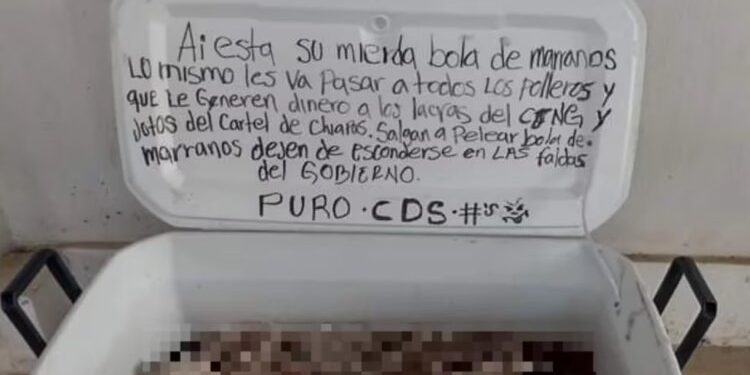 Ai esta su mierda bola de marranos
LO mismo les va Pasar a todos Los Polleros y
que Le Generen dinero a los lacras del CJNG y
Jotos del Cartel de Chiapas. Salgan a Pelear bola de.
marranos dejen de esconderse en LAS faldas
del GOBIERNO.
PURO · CDS · #'s